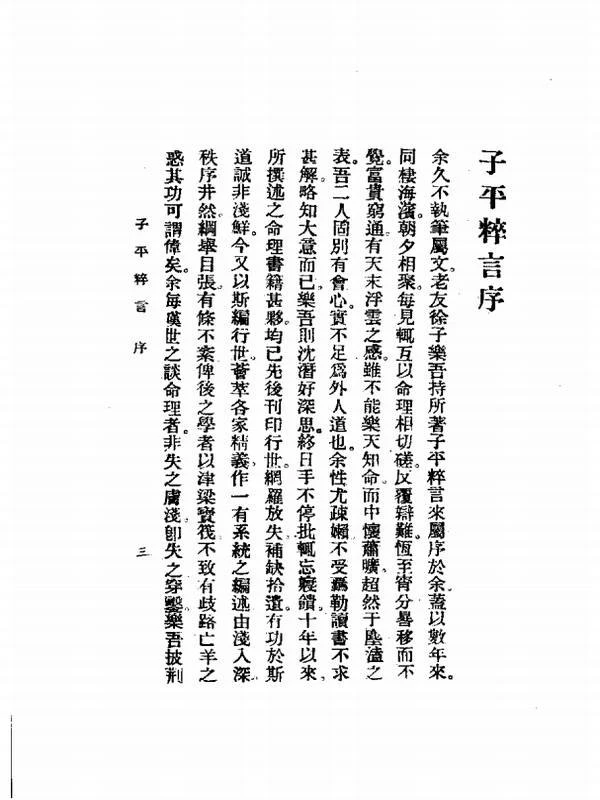 子平粹言序
余久不執筆屬文。老友徐子樂吾持所著子平粹言來屬序於余。蓋以數年來。
同棲海濱。朝夕相聚。每見輒互以命理相切磋。反覆辯難。恆至宵分晷移而不
覺。富貴窮通。有天末浮雲之感。雖不能樂天知命。而中懷蕭曠。超然于塵壒之
表。吾二人固別有會心。實不足爲外人道也。余性尤疎嬾。不受羈勒。讀書不求
甚解。略知大意而已。樂吾則沈潛好深思。終日手不停批。輒忘寢饋。十年以來。
所撰述之命理書籍甚夥。均已先後刊印行世。網羅放失。補缺拾遺。有功於斯
道。誠非淺鮮。今又以斯編行世。薈萃各家精義。作一有系統之編述。由淺入深。
秩序井然。綱舉目張。有條不紊。俾後之學者以津梁寶筏。不致有歧路亡羊之
惑。其功可謂偉矣。余每嘆世之談命理者。非失之膚淺。卽失之穿鑿。樂吾披荆
子平粹言 序
三